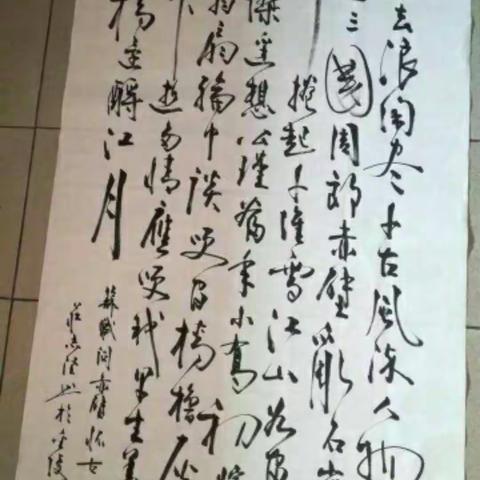 去浪淘尽千古風流人物
三國周郎赤壁乱石
捲起千堆雪江山如畫
傑遥想公瑾當年小喬初嫁
羽扇綸巾談笑間樯櫓灰
遊多情應笑我早生華
樽還酹江月
蘇軾詞赤壁怀古
於金陵